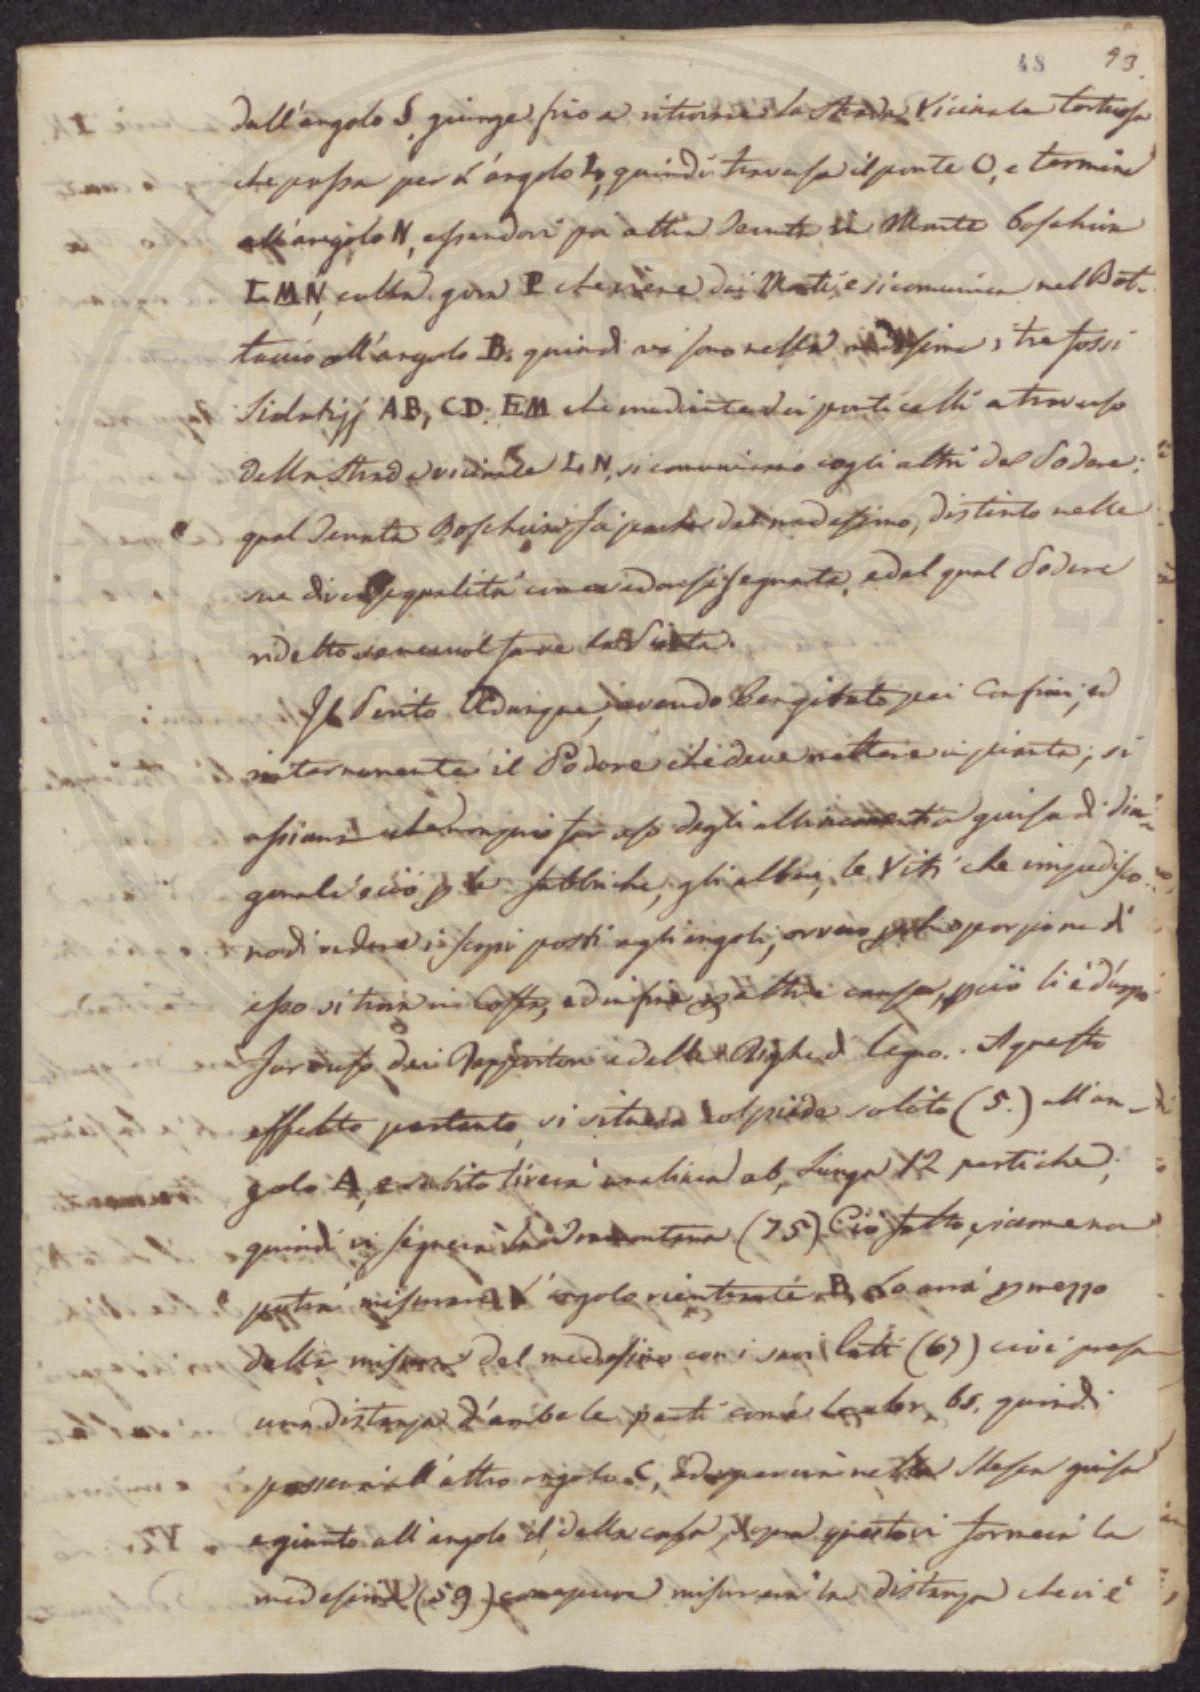 48 93.
dall'angolo S. giunge fino a ritrovare la Strada Vicinale tortuosa
che passa per l'angolo L, quindi traversa il ponte O, e termina
all'angolo N, essendovi poi altra Tenuta in Monte Boschiva
L M N, colla gora P che viene dai Monti e si comunica nel Bot-
taccio all'angolo B. quindi vi sono nella medesima i tre fossi
AB, CD. EM che mediante dei ponticelli a traverso
della Strada vicinale L N, si comunicano cogli altri del Podere;
qual Tenuta Boschiva fa parte del medesimo, distinto nelle
sue diverse qualità come vedonsi segnate, e del qual Podere
ridetto se ne vuol fare la Pianta.
Il Perito Adunque, avendo pei Confini, ed
internamente il Podere che deve mettere in pianta, si
assicura che non può far uso degli allineamenti a guisa di dia-
gonali e ciò p le fabbriche, gli alberi, le Viti che impedisco-
no di vedere i scopi posti agli angoli, ovvero porzione di
esso si trova in Costa, ed in fine p altre cause, p ciò li è d'uopo
far uso dei Rapportori e delle Righe di legno. A questo
effetto pertanto, si situerà col piede solito (5.) all'an-
golo A, e subito tirerà una linea ab, lunga 12 pertiche;
quindi vi segnerà la Tramontana (75). Ciò fatto, siccome non
potrà misurare l'angolo rientrante B, lo avrà p mezzo
della misura del medesimo con i suoi lati (67) cioè presa
una distanza d'ambe le parti com'è bs. quindi
passerà all'altro angolo C, ed opererà nella stessa guisa
e giunto all'angolo d, della casa, sopra questo vi formerà la
medesima (59) come pure misurerà la distanza che vi è